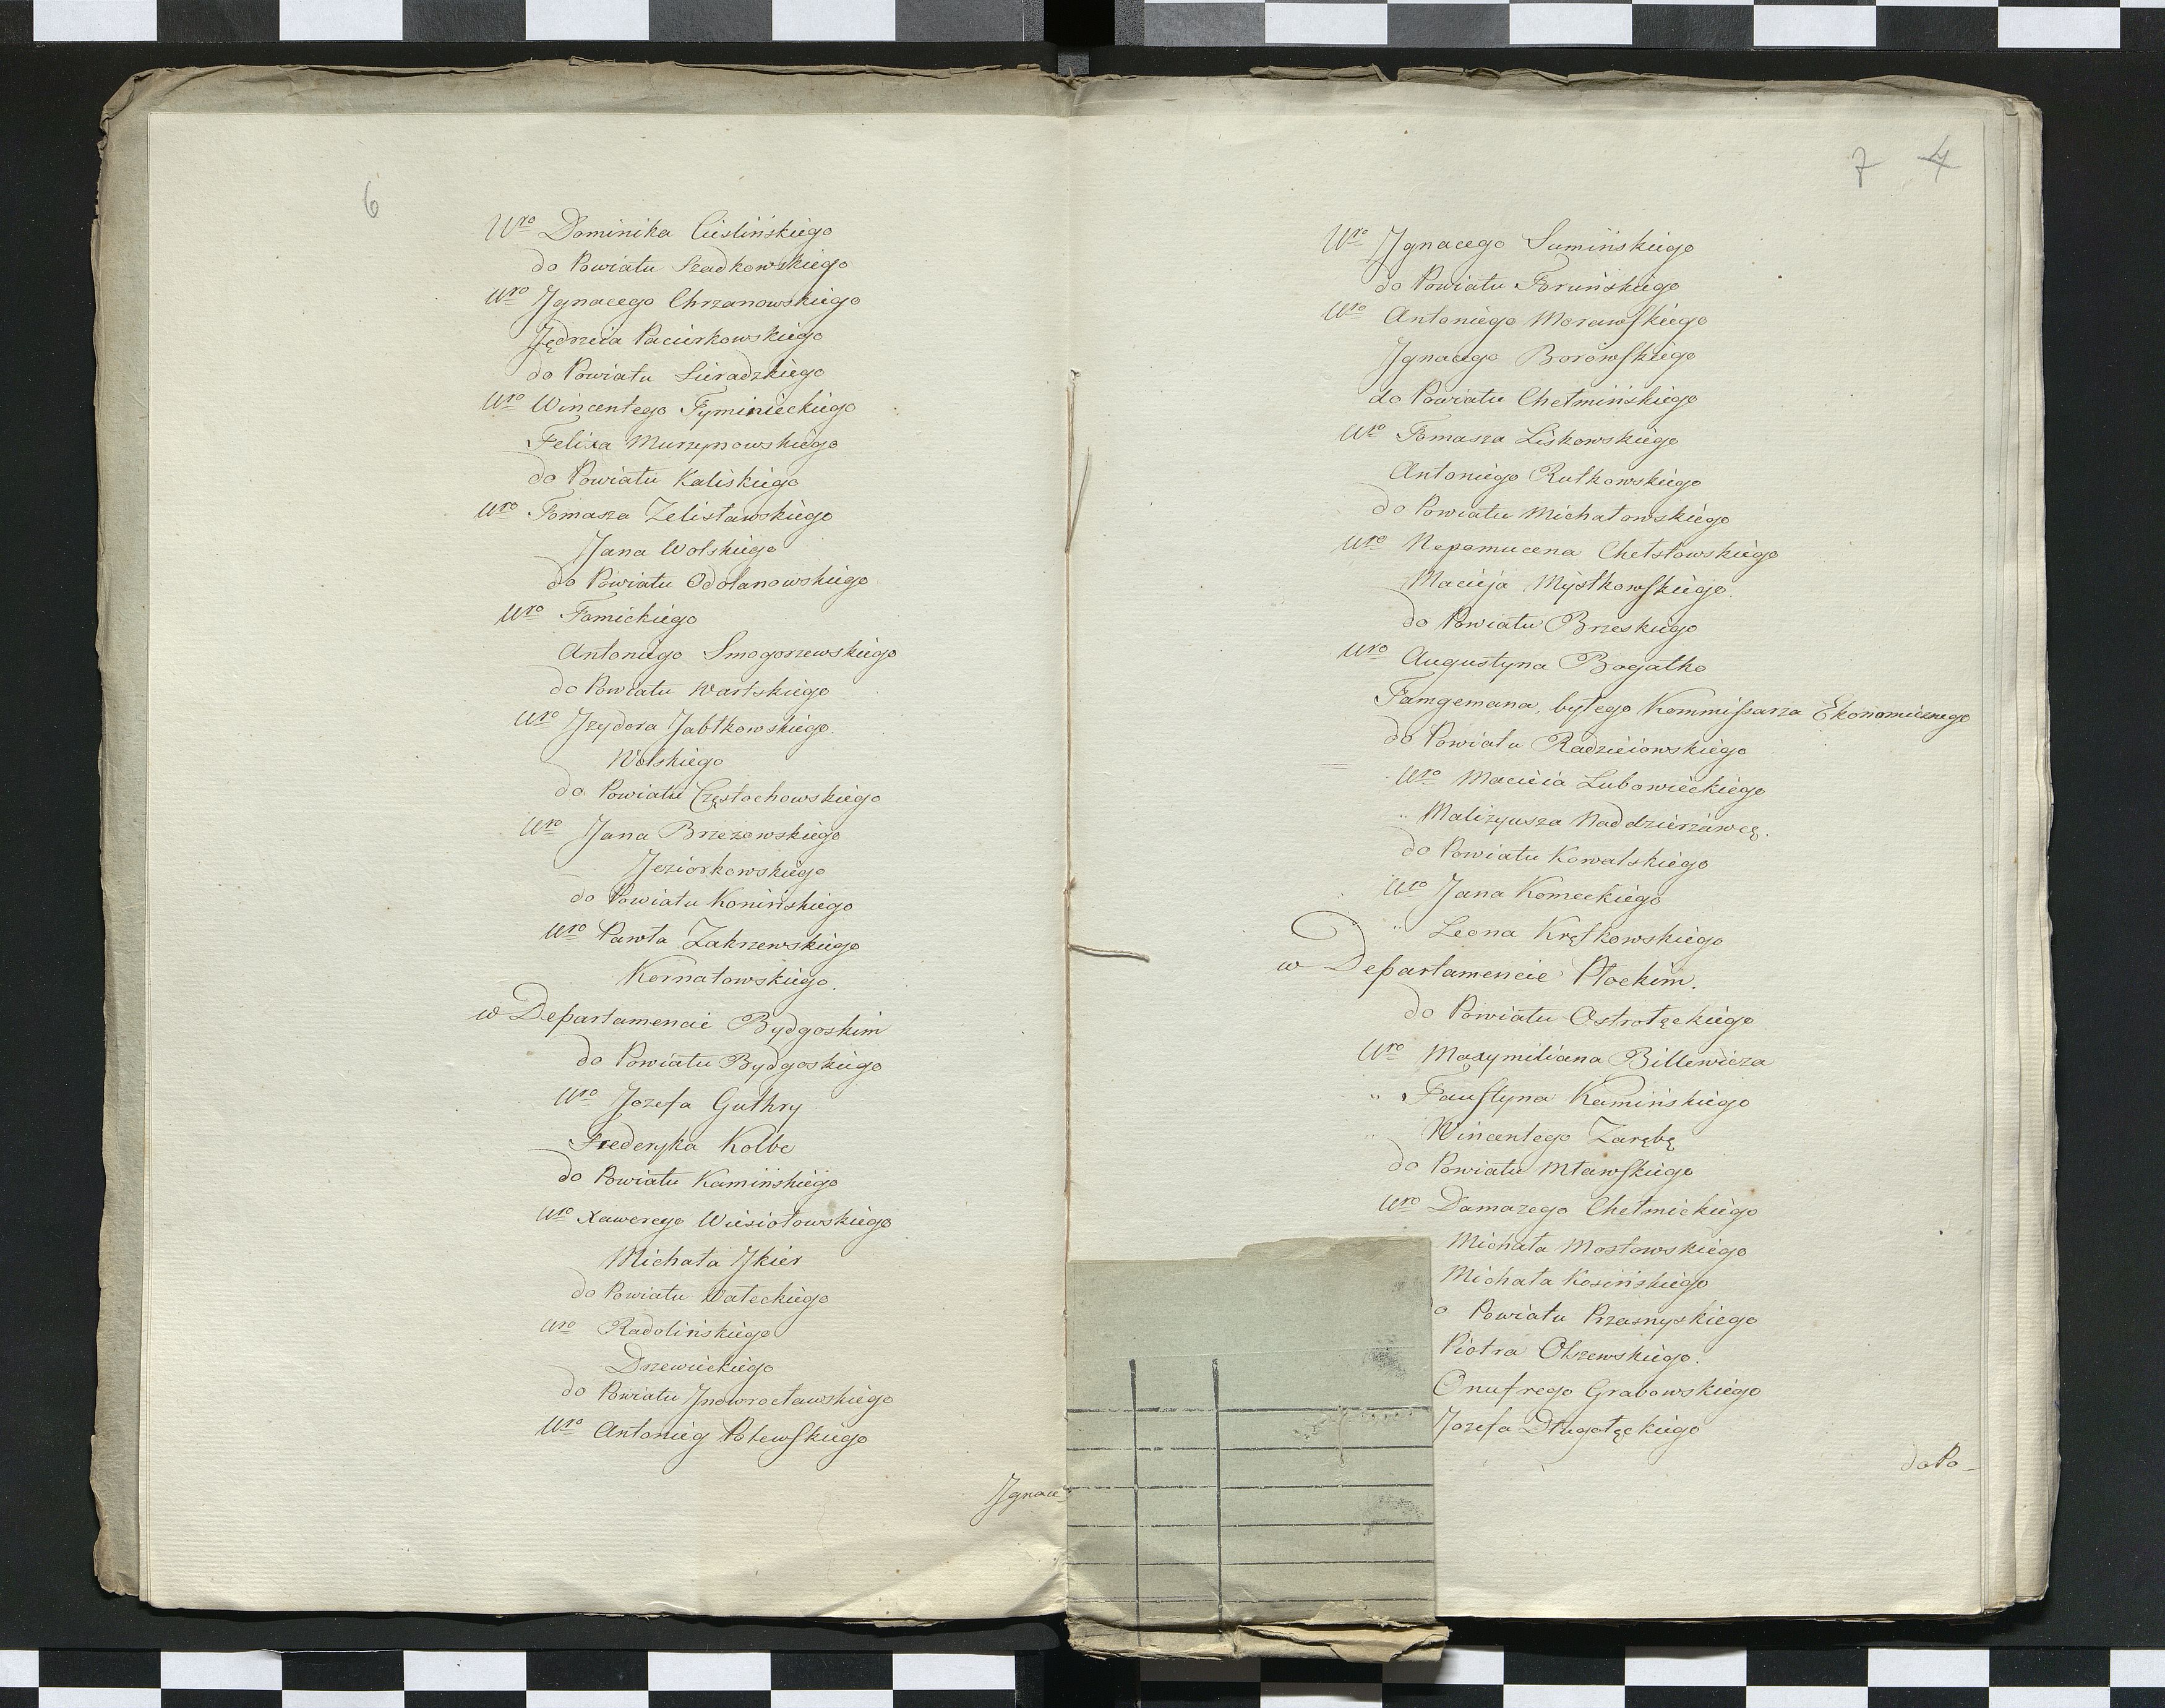 6
Uro Dominika Cieslińskiego
do Powiatu Szadkowskiego
Uro Jgnacego Chrzanowskiego
Jędrzeia Paciorkowskiego
do Powiatu Sieradzkiego
Uro Wincentego Tyminieckiego
Felixa Murzynowskiego
do Powiatu Kaliskiego
Uro Tomasza Zelisławskiego
Jana Wolskiego
do Powiatu Odolanowskiego
Uro Tomickiego
Antoniego Smogorzewskiego
do Powiatu Wartskiego
Uro Jzydora Jabłkowskiego
Wolskiego
do Powiatu Częstochowskiego
Uro Jana Brzezowskiego
Jeziorkowskiego
do Powiatu Konińskiego
Uro Pawła Zakrzewskiego
Kornatowskiego.
w Departamencie Bydgoskim
do Powiatu Bydgoskiego
Uro Jozefa Guthry
Frederyka Kolbe
do Powiatu Kamińskiego
Uro Xawerego Wiesiołowskiego
Michała Jkier
do Powiatu Wałeckiego
Uro Radolińskiego
Drzewieckiego
do Powiatu Jnowrocławskiego
Uro Antonieg Polewskiego
Jgnace
7 4
Uro Jgnacego Sumińskiego
do Powiatu Toruńskiego
Uro Antoniego Morawskiego
Jgnacego Borówskiego
do Powiatu Chełmińskiego
Uro Tomasza Liskowskiego
Antoniego Rutkowskiego
do Powiatu Michałowskiego
Uro Nepomucena Chełstowskiego
Macieja Mystkowskiego.
do Powiatu Brzeskiego
Uro Augustyna Bogatko
Tamgemana, byłego Kommissarza Ekonomicznego
do Powiatu Radzieiowskiego
Uro Macieia Lubowieckiego
" Malizyusza Naddzierzawcę.
do Powiatu Kowalskiego
Uro Jana Komeckiego
" Leona Krętkowskiego
w Departamencie Płockim.
do Powiatu Ostrołęckiego
Uro Maxymiliana Billewicza
" Faustyna Kamińskiego
" Wincentego Zarębę
do Powiatu Mławskiego
Uro Damazego Chełmickiego
Michała Mostowskiego
Michała Kosińskiego
o Powiatu Przasnyskiego
Piotra Olszewskiego.
Onufrego Grabowskiego
Jozefa Długołęckiego
do Po-